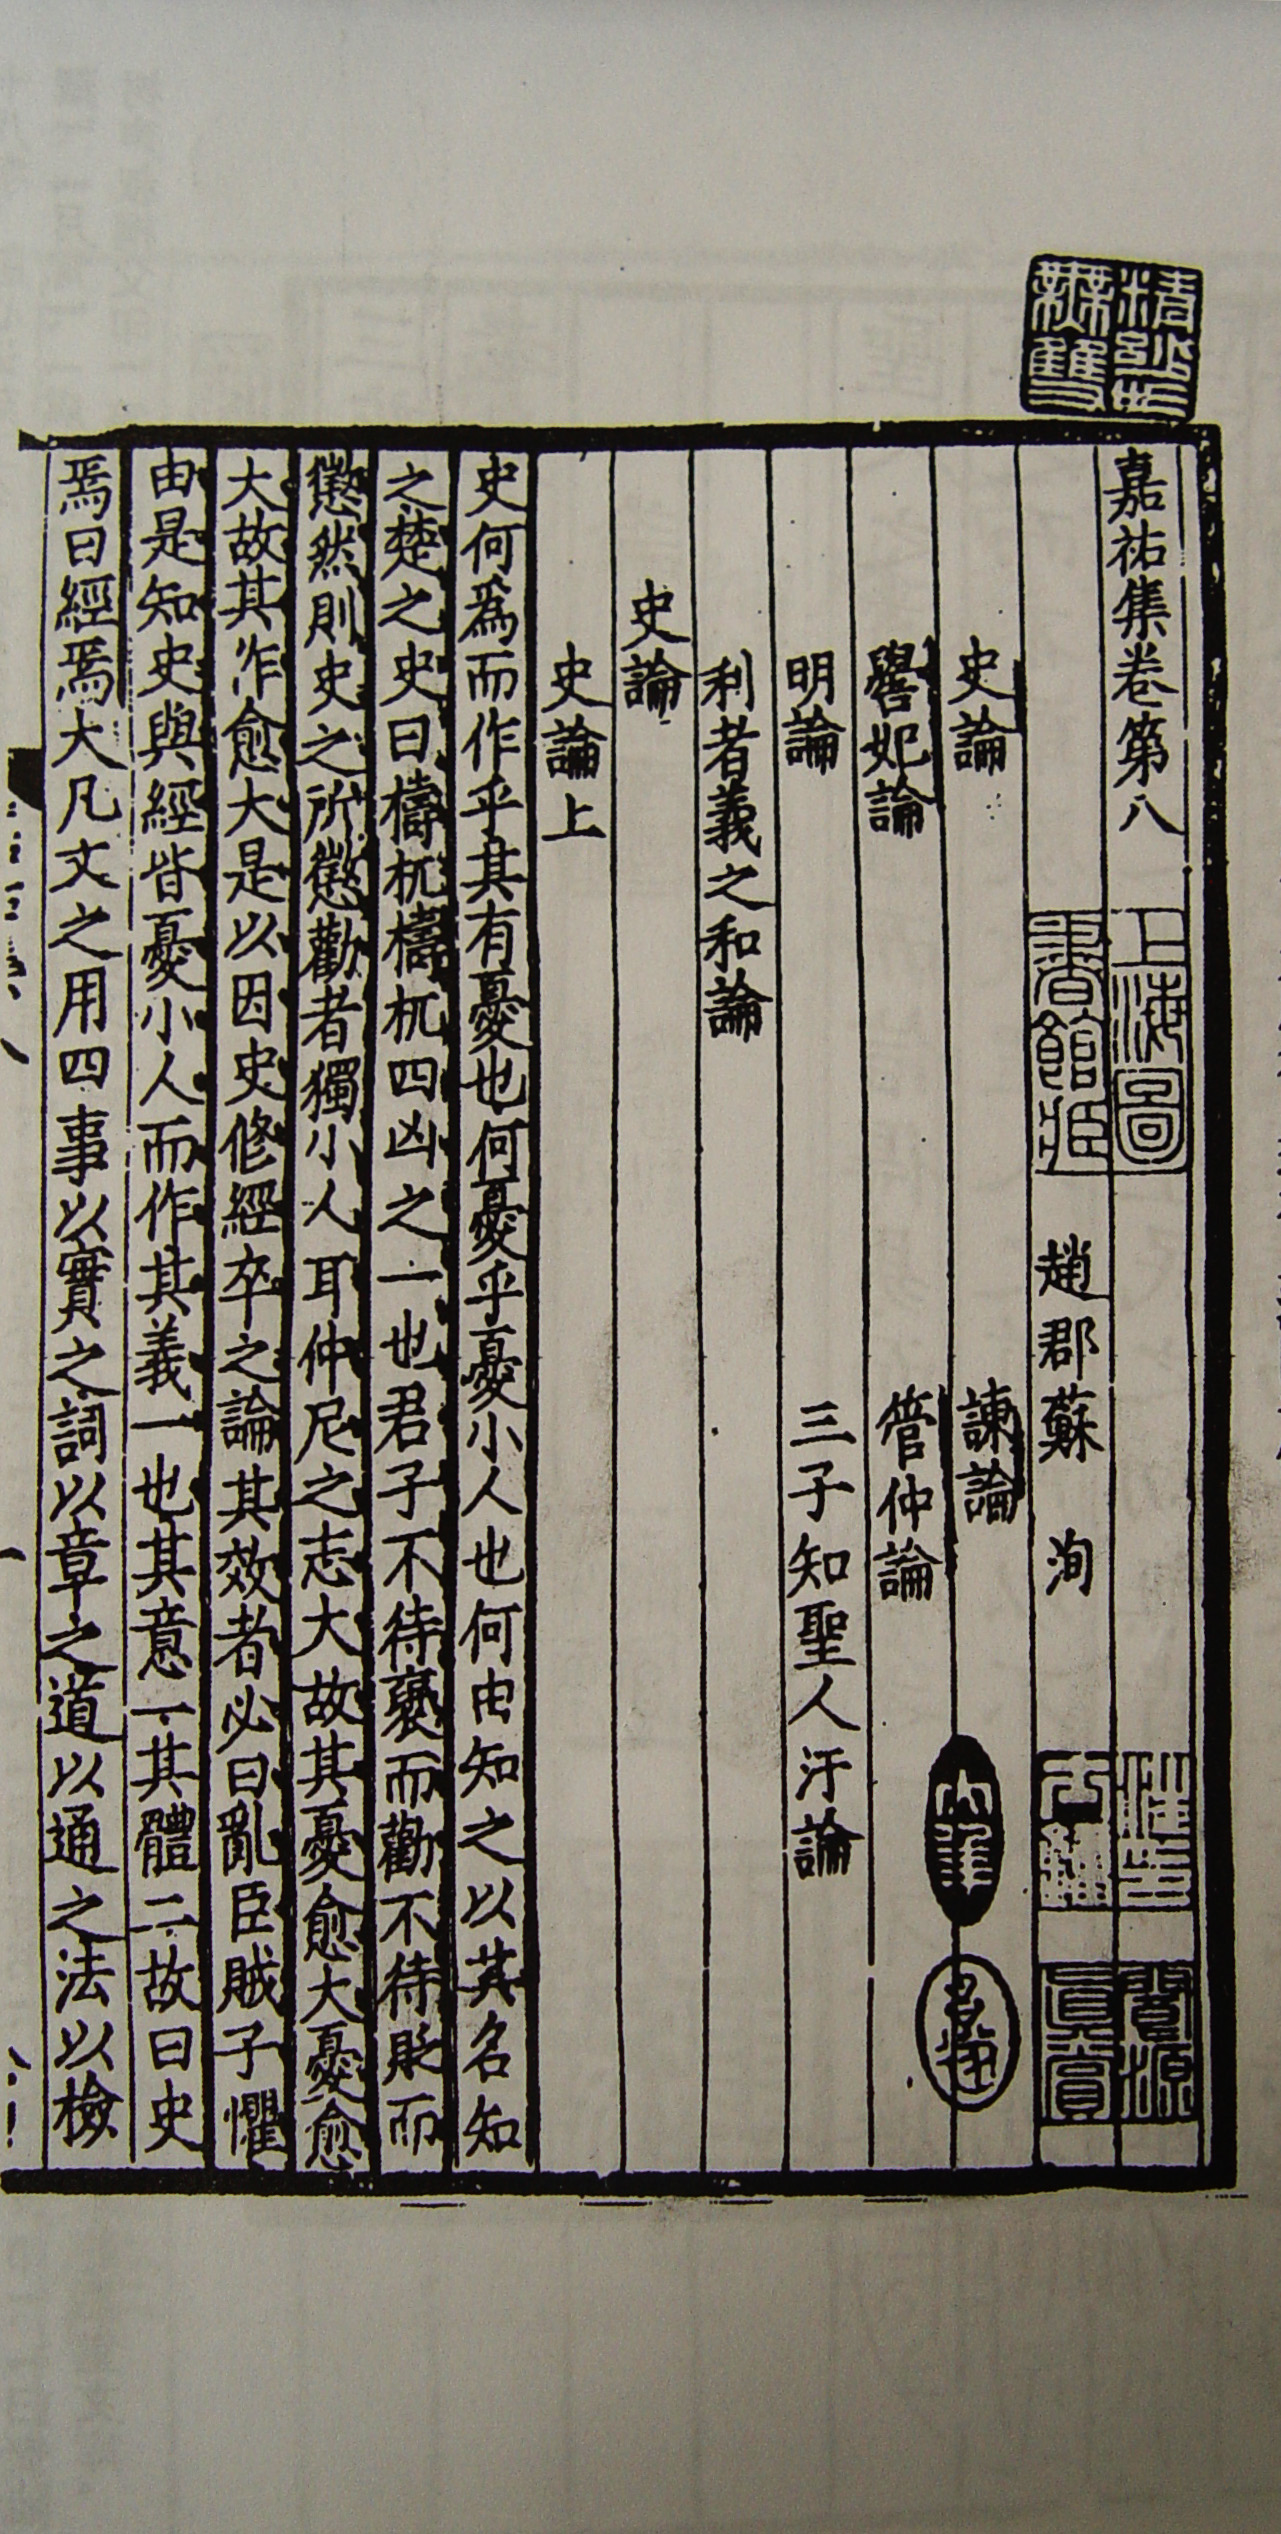 嘉祐集卷第八
趙郡蘇洵
史論 諫論
嚳妃論 管仲論
明論 三子知聖人汙論
利者義之和論
史論
史論上
史何爲而作乎其有憂也何憂乎憂小人也何由知之以其名知
之楚之史曰檮杌檮杌四凶之一也君子不待襃而勸不待貶而
懲然則史之所懲勸者獨小人耳仲尼之志大故其憂愈大憂愈
大故其作愈大是以因史修經卒之論其效者必曰亂臣賊子懼
由是知史與經皆憂小人而作其義一也其意一其體二故曰史
焉曰經焉大凡文之用四事以實之詞以章之道以通之法以檢
上海圖
書館藏